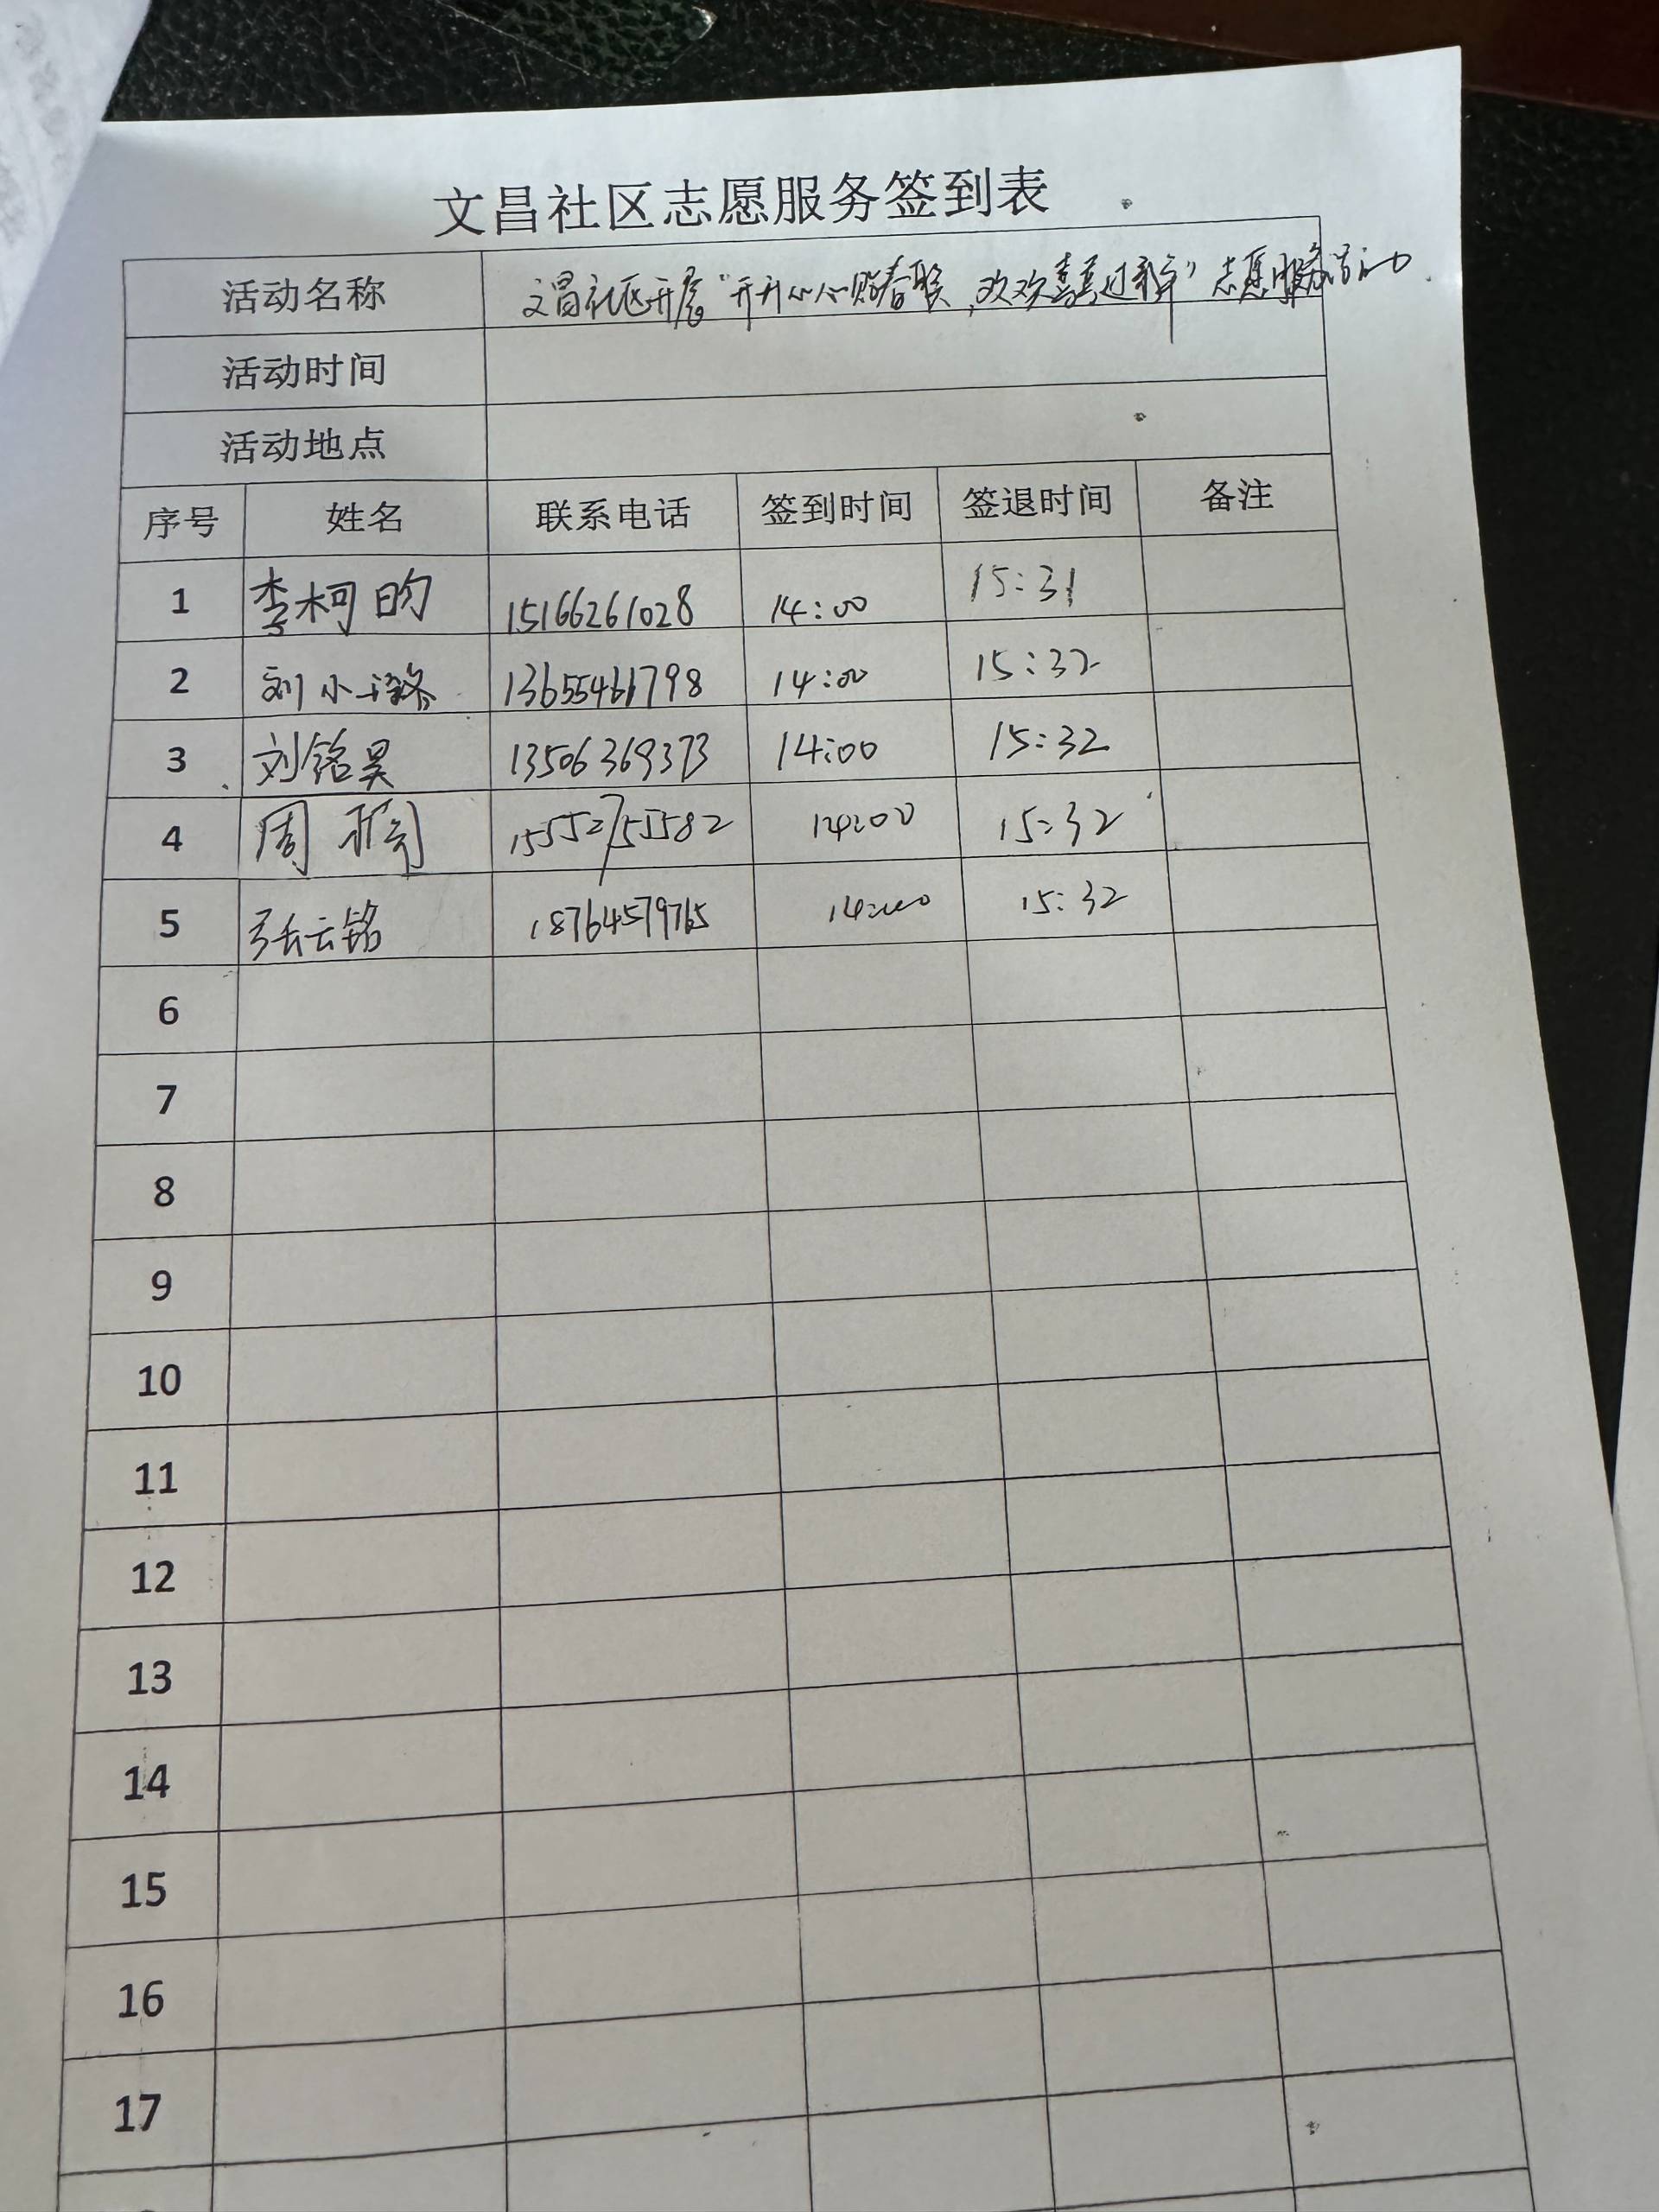 文昌社区志愿服务签到表
活动名称 文昌社区开展“开开心心贴春联，欢欢喜喜过新年”志愿服务活动
活动时间
活动地点
序号 姓名 联系电话 签到时间 签退时间 备注
1 李柯昀 15166261028 14:00 15:31
2 刘小璐 13655461798 14:00 15:32
3 刘铭昊 13506369373 14:00 15:32
4 周 15552755582 14:00 15:32
5 张云铭 18764579765 14:00 15:32
6
7
8
9
10
11
12
13
14
15
16
17